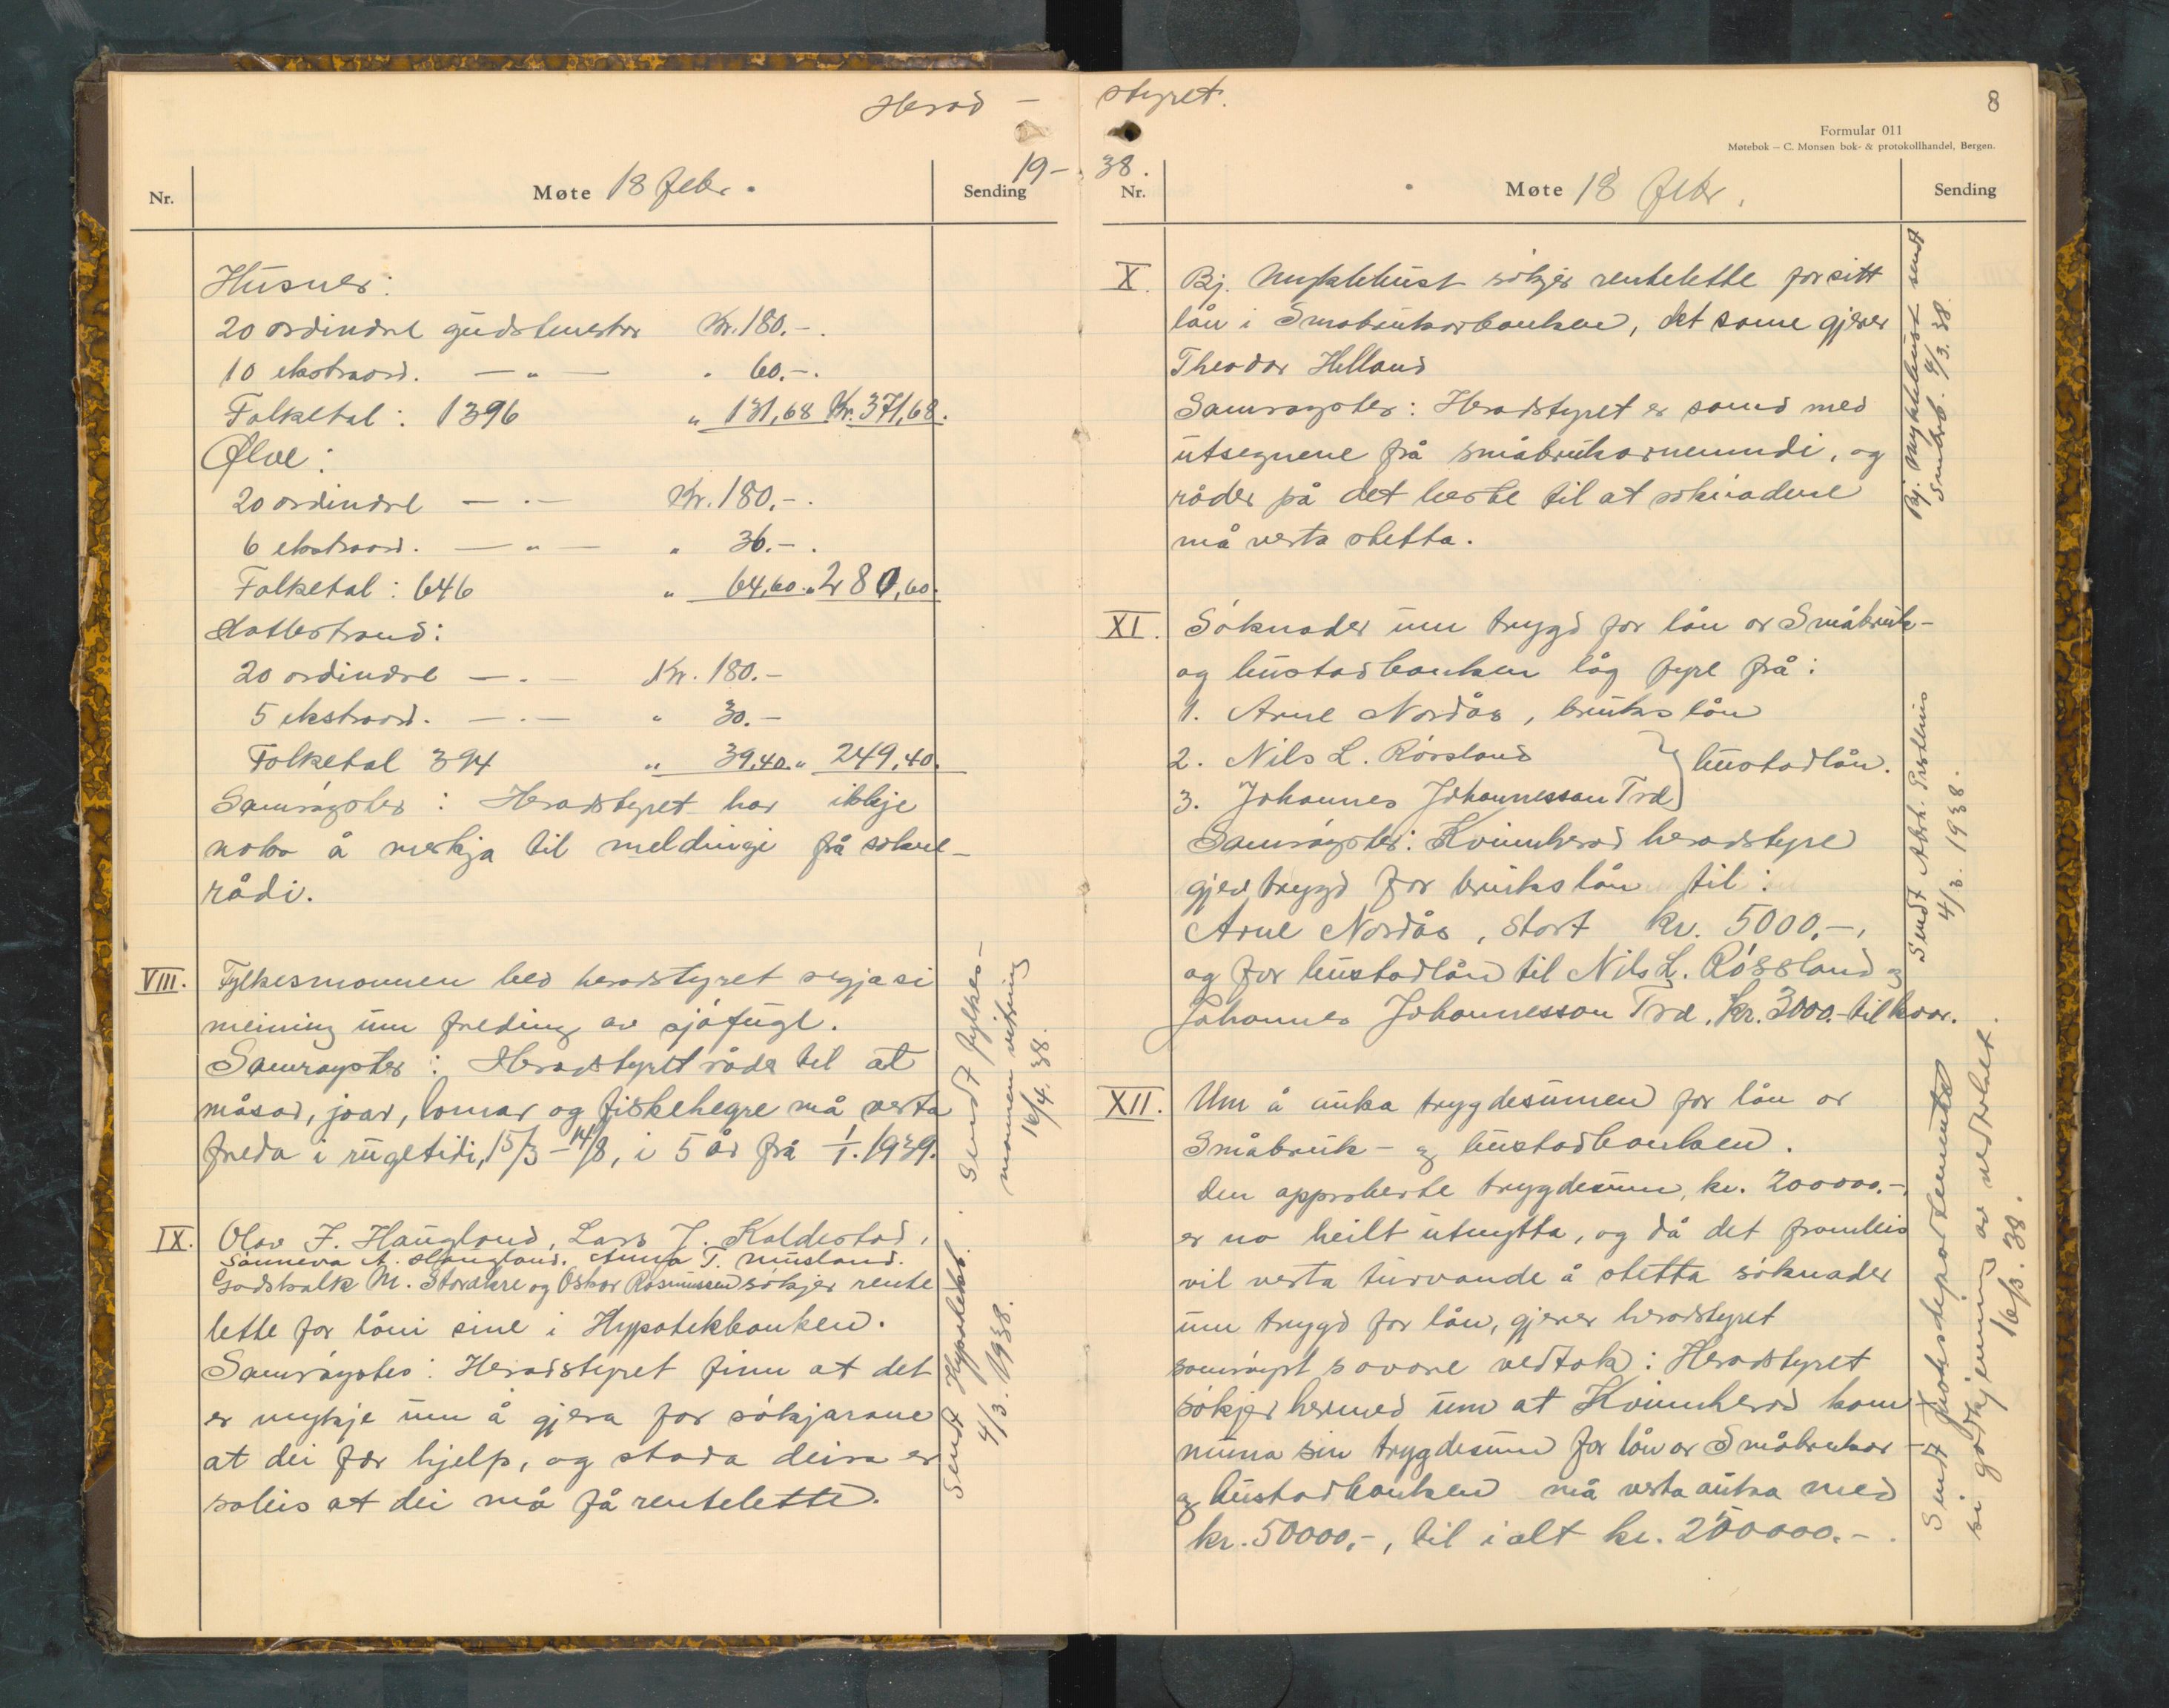 Herad – styret.
8
Formular 011
Møtebok – C. Monsen bok- & protokollhandel, Bergen.
19 – 38.
Nr.
Møte 18 febr.
Sending
Husnes:
20 ordinære gudstenester Kr. 180.-.
10 ekstraord. — " — " 60.-.
Folketal: 1396 " 131,68 Kr. 371,68.
Ølve:
20 ordinære — . — Kr. 180.-.
6 ekstraord. — " — " 36.-.
Folketal: 646 " 64,60. " 280,60.
Hattestrand:
20 ordinære — . — Kr. 180.-
5 ekstraord. — . — " 30.-
Folketal 394 " 39,40. " 249,40.
Samrøystes: Heradstyret har ikkje
noko å merkja til meldingi frå sokne-
rådi.
VIII. Fylkesmannen bed heradstyret segja si
meining um freding av sjøfugl.
Samrøystes: Heradstyret råder til at
måsar, joar, lomar og fiskehegre må verta
freda i rugetidi, 15/3 – 14/8, i 5 år frå 1/1. 1939.
Sendt fylkes-
mannen utskrift
16/4. 38.
IX. Olav J. Haugland, Lars J. Kaldestad,
Sunneva A. Haugland. Anna T. Musland.
Godskalk M. Storakre og Oskar Rasmussen søkjer rente
lette for låni sine i Hypotekbanken.
Samrøystes: Heradstyret finn at det
er mykje um å gjera for søkjarane
at dei fær hjelp, og stoda deira er
soleis at dei må få rentelette.
Sendt Hypotekb.
4/3. 1938.
Nr.
Møte 18 febr.
Sending
X. Bj. Myklebust søkjer rentelette for sitt
lån i Småbrukarbanken, det same gjerer
Theodor Helland
Samrøystes: Heradstyret er samd med
utsegnene frå småbrukarnemndi, og
råder på det beste til at søknadene
må verta stetta.
Bj. Myklebust sendt
Småbrb. 4/3. 38.
XI. Søknader um trygd for lån or Småbruk-
og bustadbanken låg fyre frå:
1. Arne Nordås, brukslån
2. Nils L. Røssland } bustadlån.
3. Johannes Johannesson Træ
Samrøystes: Kvinnherad heradstyre
gjev trygd for brukslån til:
Arne Nordås, stort kr. 5000,-,
og for bustadlån til Nils L. Røssland og
Johannes Johannesson Træ, kr. 3000.- til kvar.
4/3. 1938.
XII. Um å auka trygdesumen for lån or
Småbruk- og bustadbanken.
Den approberte trygdesum, kr. 200000.-,
er no heilt utnytta, og då det framleis
vil verta turvande å stetta søknader
um trygd for lån, gjerer heradstyret
samrøyst sovore vedtak: Heradstyret
søkjer hermed um at Kvinnherad kom
muna sin trygdesum for lån or Småbrukar-
og bustadbanken må verta auka med
kr. 50000,-, til i alt kr. 250000.-.
si godkjenning av vedtaket.
16/3. 38.